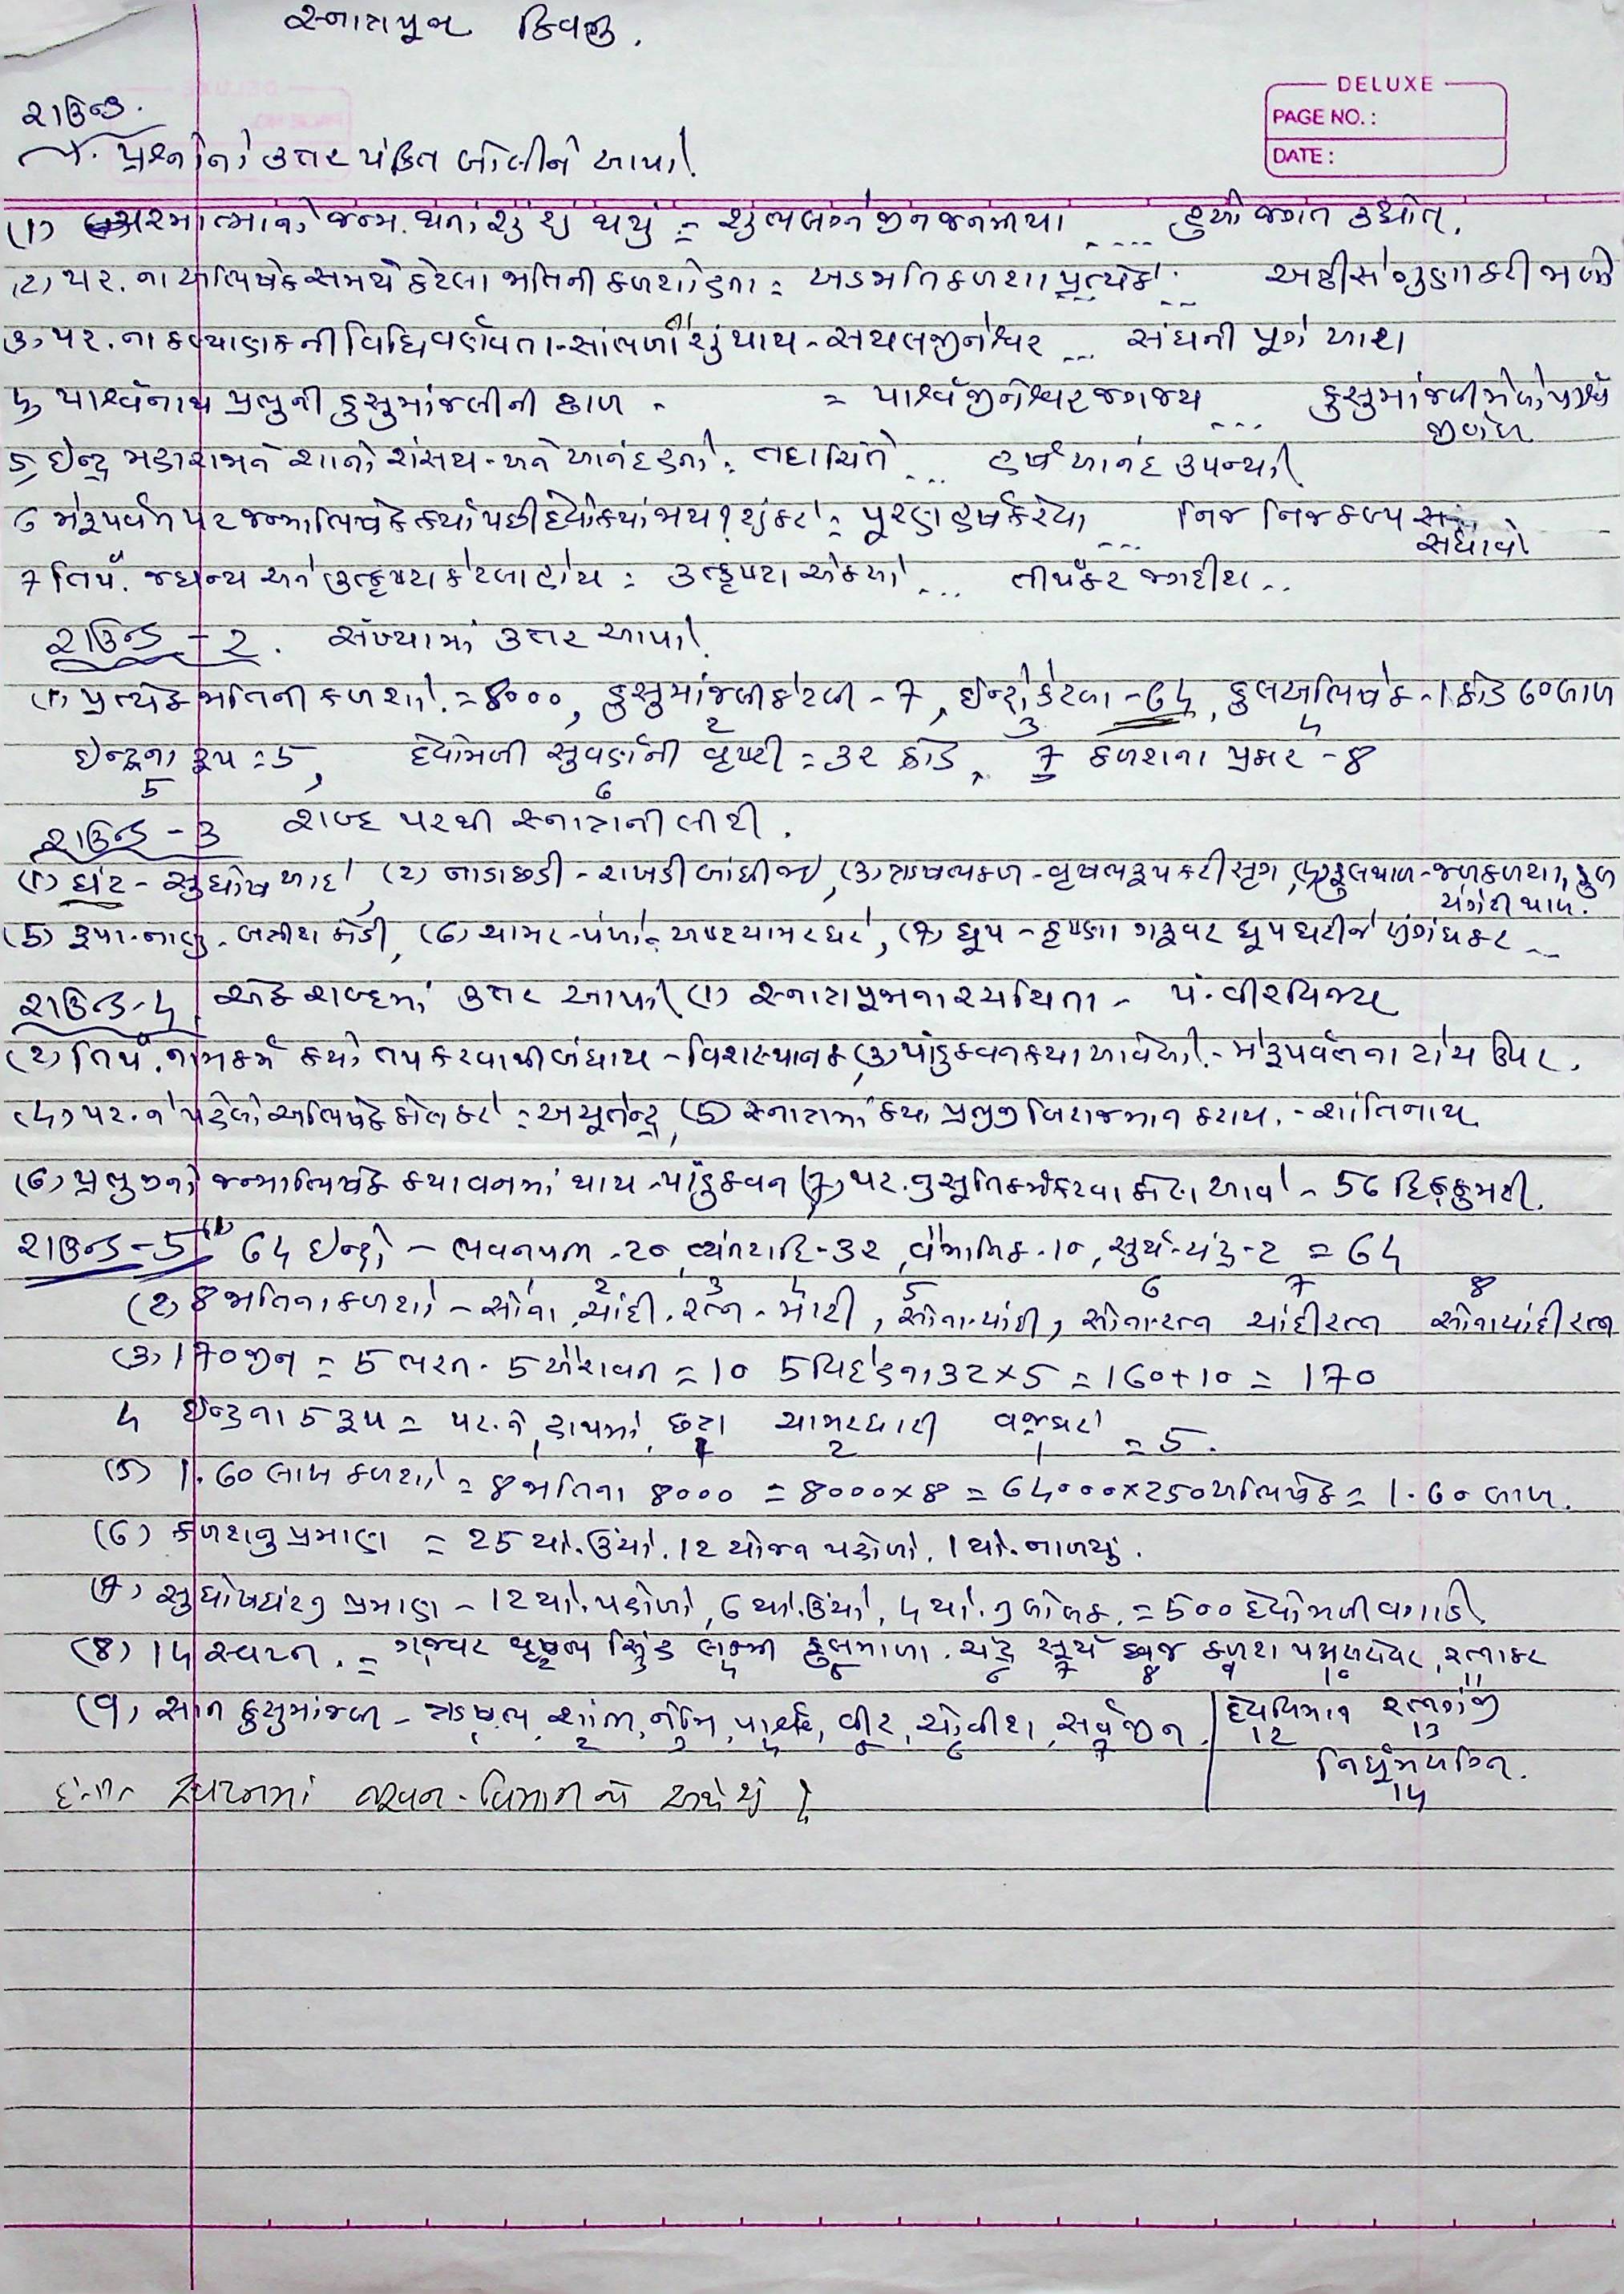 સ્નાત્રપૂજા ક્વિઝ.
DELUXE
PAGE NO.:
DATE:
રાઉન્ડ.
૧. પ્રશ્નોનો ઉત્તર પંક્તિ બોલીને આપો.
(1) પરમાત્માનો જન્મ થતાં શું શું થયું = શુભલગ્ને જીન જનમીયા .... હુઓ જગત ઉદ્યોત.
(2) પર. ના અભિષેક સમયે કેટલા જાતિની કળશો હતા = અડજાતિ કળશા પ્રત્યેકે .. અઠ્ઠીસં ગુણા કરી જાણો
3) પર. ના કલ્યાણકની વિધિ વર્ણવતા-સાંભળતા શું થાય - સયલજીનેશ્વર ... સંઘની પૂગે આશ
4) પાર્શ્વનાથ પ્રભુની કુસુમાંજલીની ઢાળ - = પાર્શ્વજીનેશ્વર જગજય .... કુસુમાંજળી મેળો પાર્શ્વ જીણંદા
5) ઇન્દ્ર મહારાજાને શાનો સંસય-અને આનંદ હતો. તદા ચિંતે ... હર્ષ આનંદ ઉપન્યો.
6 મેરૂપર્વત પર જન્માભિષેક કર્યા પછી દેવો ક્યાં જાય? શું કરે = પૂરણ હર્ષ કરેવા ... નિજ નિજ કલ્પ સધાવો
7 તિર્થં. જઘન્ય અને ઉત્કૃષ્ટા કેટલા હોય = ઉત્કૃષ્ટા એકસો .... તીર્થંકર જગદીશ..
રાઉન્ડ - 2. સંખ્યામાં ઉત્તર આપો.
(1) પ્રત્યેક જાતિની કળશો = 8000, કુસુમાંજલી કેટલી - 7, ઇન્દ્રો કેટલા - 64, કુલ અભિષેક - 1 ક્રોડ 60 લાખ
2 3 4
ઇન્દ્રના રૂપ = 5, દેવો મળી સુવર્ણની વૃષ્ટી = 32 ક્રોડ, 7 કળશના પ્રકાર - 8
5 6
રાઉન્ડ - 3 શબ્દ પરથી સ્નાત્રની લીટી.
(1) ઘંટ - સુઘોષ આદે, (2) નાડાછડી - રાખડી બાંધી જઇ, (3) ઋષભકળ - વૃષભરૂપ કરી સૃંગ, (4) ફુલથાળ - જળકળશા, ફુલ ચંગેરી થાળ.
(5) રૂપા-નાણુ - બત્રીશ કોડી, (6) ચામર-પંખો = અષ્ટ ચામર ધરે, (7) ધૂપ - કૃષ્ણા ગરૂવર ધૂપ ધરીને સુગંધ કર ..
રાઉન્ડ-4. એક શબ્દમાં ઉત્તર આપો (1) સ્નાત્રપૂજાના રચયિતા - પં. વીરવિજય
(2) તિર્થં. નામકર્મ કયો તપ કરવાથી બંધાય - વિશસ્થાનક, (3) પાંડુકવન ક્યાં આવેલો - મેરૂપર્વતના ટોચ ઉપર.
(4) પર. ને પહેલો અભિષેક કોણ કરે = અચ્યૂતેન્દ્ર, (5) સ્નાત્રમાં કયા પ્રભુજી બિરાજમાન કરાય. - શાંતિનાથ
(6) પ્રભુજીનો જન્માભિષેક કયા વનમાં થાય - પાંડુકવન (7) પર. નુ સૂતિકર્મ કરવા કોણ આવે - 56 દિક્કુમારી.
રાઉન્ડ-5 (1) 64 ઇન્દ્રો - ભવનપતિ - 20, વ્યંતરાદિ - 32, વૈમાનિક - 10, સૂર્ય-ચંદ્ર - 2 = 64
2 3 4 5 6 7 8
(2) 8 જાતિના કળશો - સોના, ચાંદી, રત્ન - માટી, સોનાચાંદી, સોનારત્ન ચાંદીરત્ન સોનાચાંદીરત્ન
(3) 170 જીન = 5 ભરત - 5 ઐરાવત = 10 5 વિદેહના 32 x 5 = 160 + 10 = 170
4 ઇન્દ્રના 5 રૂપ = પર. ને હાથમાં, છત્ર ચામરધારી વજ્રધરે = 5.
1 2 1
(5) 1.60 લાખ કળશો = 8 જાતિના 8000 = 8000 x 8 = 64000 x 250 અભિષેક = 1.60 લાખ.
(6) કળશનુ પ્રમાણ = 25 યો. ઉંચો. 12 યોજન પહોળો. 1 યો. નાળચુ.
(7) સુઘોષઘંટનુ પ્રમાણ - 12 યો. પહોળો, 6 યો. ઉંચો, 4 યો. નુ લોલક. = 500 દેવો મળી વગાડે.
(8) 14 સ્વપ્ન. = ગજવર વૃષભ સિંહ લક્ષ્મી ફુલમાળા. ચંદ્ર સૂર્ય ધ્વજ કળશ પદ્મસરોવર, રત્નાકર
2 3 4 5 6 7 8 9 10 11
(9) સાત કુસુમાંજળી - ઋષભ, શાંતિ, નેમિ, પાર્શ્વ, વીર, ચોવીશ, સર્વજીન.
1 2 3 4 5 6 7
દેવવિમાન રત્નરાશિ
12 13
નિર્ધૂમઅગ્નિ.
14
સ્વપ્નમાં ભવન - વિમાનનો અર્થ શું ?